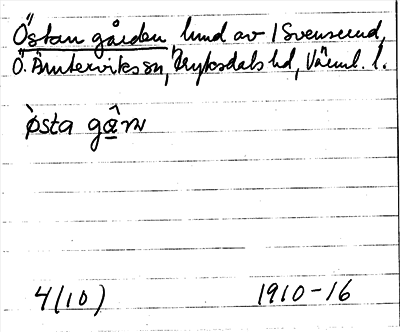 Östan gården, lund av 1 Svensrud,
Ö. Ämterviks sn, Fryksdals hd, Värml. l.
östa gâ̱rn
4(10) 1910-16